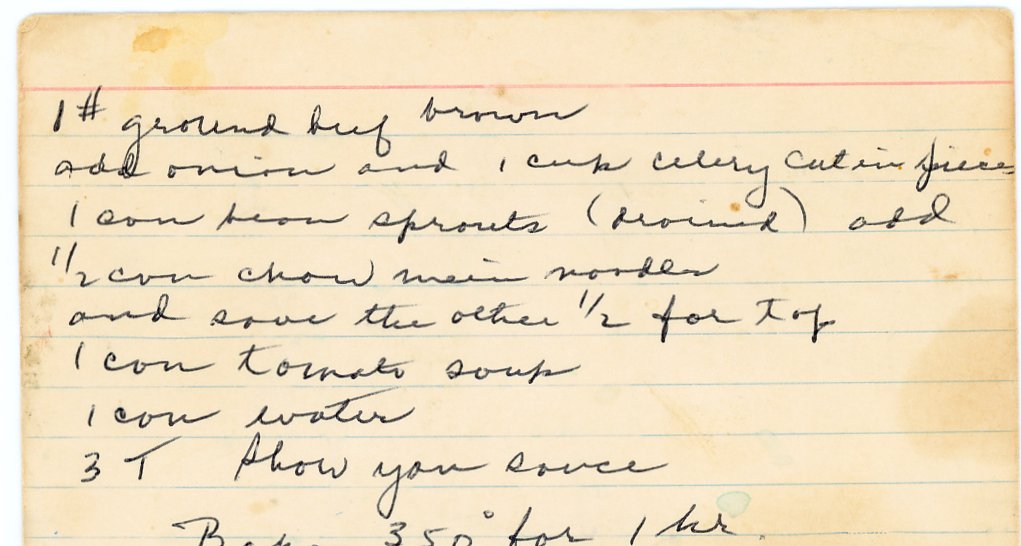 1# ground beef brown
add onion and 1 cup celery cut in pieces
1 can bean sprouts (drained) add
1/2 can chow mein noodles
and save the other 1/2 for top
1 can tomato soup
1 can water
3 T Show you sauce
Bake 350° for 1 hr.